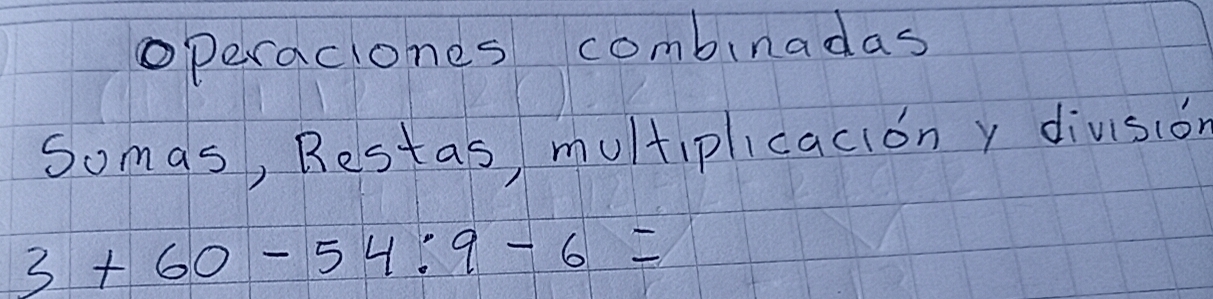 operaciones combinadas
Somas, Restas, multiplicación y división
3 + 60 - 54 : 9 - 6 =